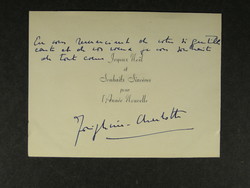 En vous remerciant de votre si gentille
carte et de vos voeux je vous souhaite
de tout coeur
Joyeux Noël
et
Souhaits Sincères
pour
l'Année Nouvelle
Joséphine-Charlotte